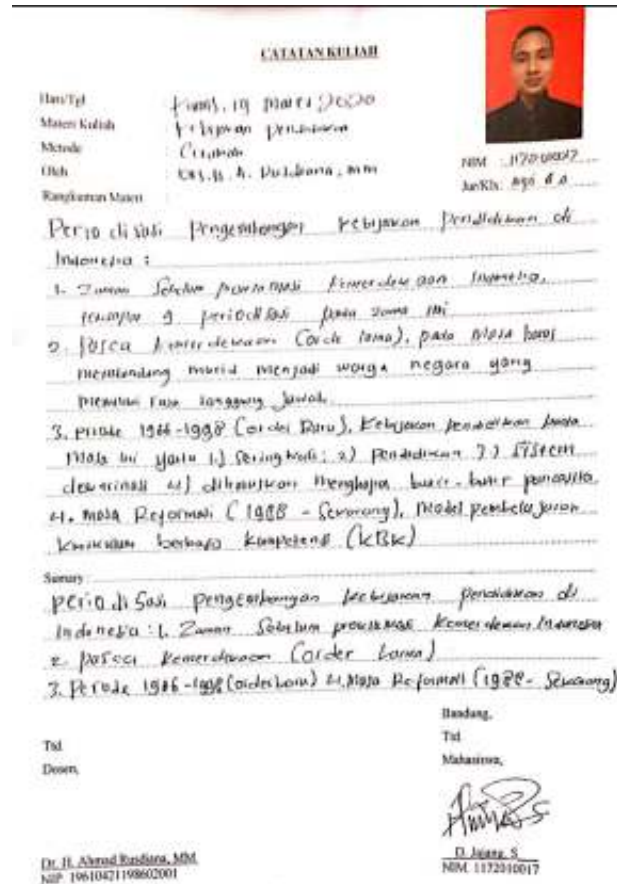 CATATAN KULIAH
Hari/Tgl Kamis, 19 Maret 2020
Materi Kuliah Kebijakan pendidikan
Metode Ceramah
Oleh Drs. H. A. Rusdiana, MM
NIM : 1172010017
Jur/Kls:
Rangkuman Materi
Periodisasi Pengembangan kebijakan Pendidikan di
Indonesia :
1. Zaman Sebelum proklamasi kemerdekaan Indonesia,
periodisasi pada zaman ini
2. Pasca kemerdekaan (orde lama), pada masa
membimbing murid menjadi warga negara yang
memiliki rasa tanggung jawab.
3. priode 1966-1998 (orde Baru), Kebijakan pendidikan pada
masa ini yaitu 1.) 2) pendidikan 3) sistem
4) menghapal butir-butir pancasila.
4. masa Reformasi (1988 - Sekarang), Model pembelajaran
kurikulum berbasis kompetensi (KBK)
Sumary :
periodisasi pengembangan kebijakan pendidikan di
Indonesia : 1. Zaman Sebelum proklamasi kemerdekaan Indonesia
2. pasca kemerdekaan (order Lama)
3. Periode 1966-1998 (order baru) 4. Masa Reformasi (1988- Sekarang)
Bandung,
Ttd Ttd
Dosen, Mahasiswa,
Dr. H. Ahmad Rusdiana, MM D. Jajang. S
NIP. 196104211986021001 NIM. 1172010017